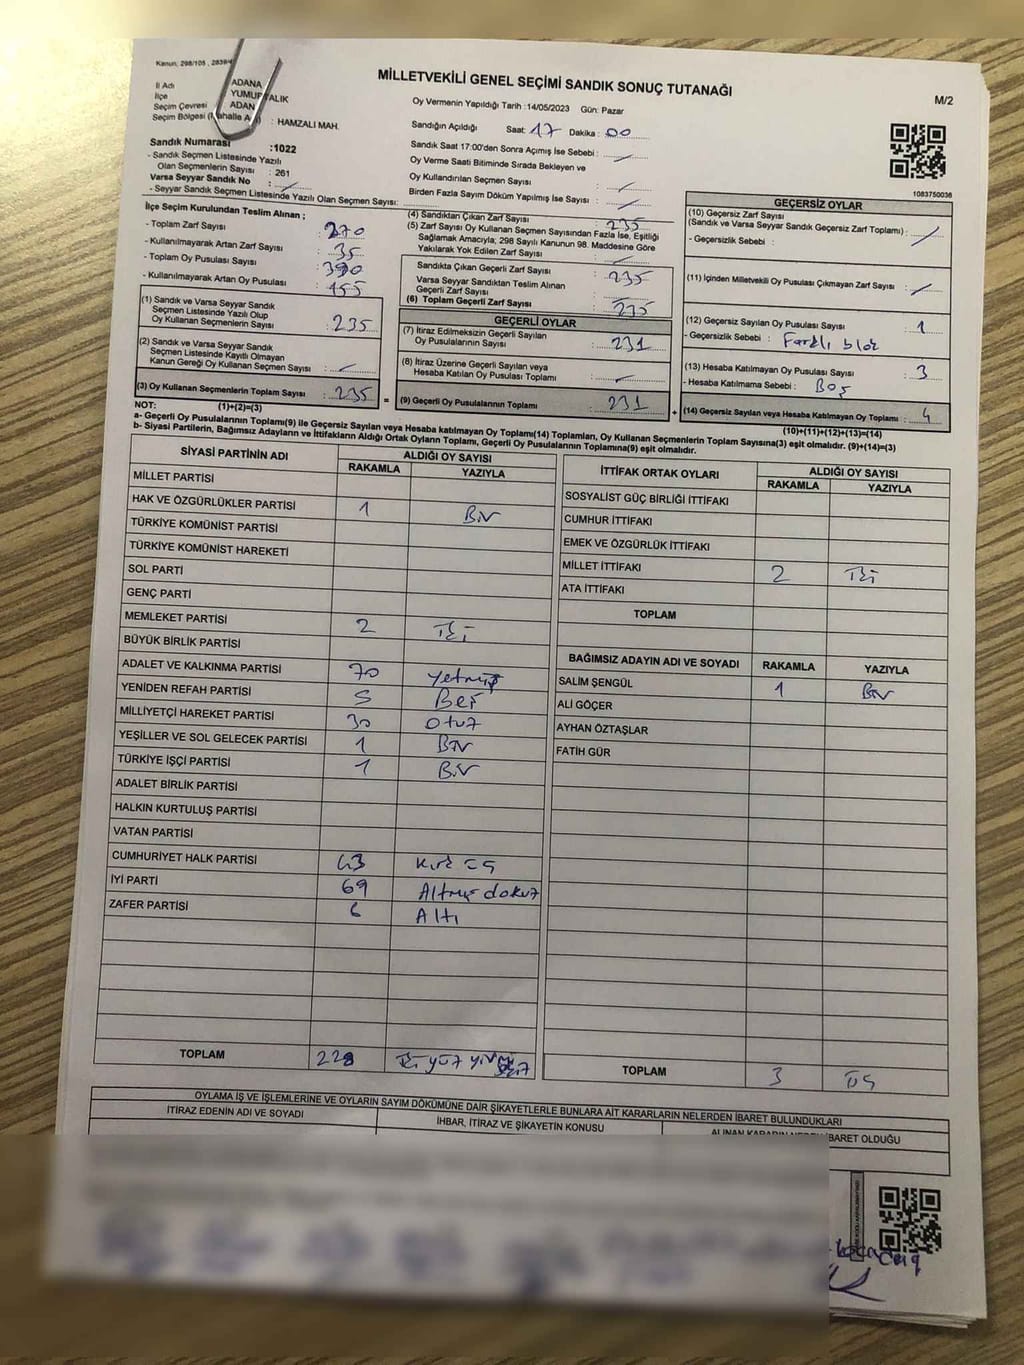 Kanun; 298/105 , 2839/4
MİLLETVEKİLİ GENEL SEÇİMİ SANDIK SONUÇ TUTANAĞI
M/2
İl Adı ADANA
İlçe YUMURTALIK
Seçim Çevresi ADAN
Seçim Bölgesi (Mahalle A : HAMZALI MAH.
Sandık Numarası :1022
- Sandık Seçmen Listesinde Yazılı
Olan Seçmenlerin Sayısı : 261
Varsa Seyyar Sandık No :
- Seyyar Sandık Seçmen Listesinde Yazılı Olan Seçmen Sayısı:
Oy Vermenin Yapıldığı Tarih :14/05/2023 Gün: Pazar
Sandığın Açıldığı Saat: 17 Dakika : 00
Sandık Saat 17:00'den Sonra Açımış İse Sebebi :
Oy Verme Saati Bitiminde Sırada Bekleyen ve
Oy Kullandırılan Seçmen Sayısı :
Birden Fazla Sayım Döküm Yapılmış İse Sayısı :
1083750036
İlçe Seçim Kurulundan Teslim Alınan ;
- Toplam Zarf Sayısı : 270
- Kullanılmayarak Artan Zarf Sayısı : 35
- Toplam Oy Pusulası Sayısı : 390
- Kullanılmayarak Artan Oy Pusulası : 155
(1) Sandık ve Varsa Seyyar Sandık
Seçmen Listesinde Yazılı Olup
Oy Kullanan Seçmenlerin Sayısı : 235
(2) Sandık ve Varsa Seyyar Sandık
Seçmen Listesinde Kayıtlı Olmayan
Kanun Gereği Oy Kullanan Seçmen Sayısı :
(3) Oy Kullanan Seçmenlerin Toplam Sayısı : 235 =
(4) Sandıktan Çıkan Zarf Sayısı : 235
(5) Zarf Sayısı Oy Kullanan Seçmen Sayısından Fazla İse, Eşitliği
Sağlamak Amacıyla; 298 Sayılı Kanunun 98. Maddesine Göre
Yakılarak Yok Edilen Zarf Sayısı :
Sandıkta Çıkan Geçerli Zarf Sayısı : 235
Varsa Seyyar Sandıktan Teslim Alınan
Geçerli Zarf Sayısı :
(6) Toplam Geçerli Zarf Sayısı : 235
GEÇERLİ OYLAR
(7) İtiraz Edilmeksizin Geçerli Sayılan
Oy Pusulalarının Sayısı : 231
(8) İtiraz Üzerine Geçerli Sayılan veya
Hesaba Katılan Oy Pusulası Toplamı :
(9) Geçerli Oy Pusulalarının Toplamı : 231 +
GEÇERSİZ OYLAR
(10) Geçersiz Zarf Sayısı
(Sandık ve Varsa Seyyar Sandık Geçersiz Zarf Toplamı) :
- Geçersizlik Sebebi :
(11) İçinden Milletvekili Oy Pusulası Çıkmayan Zarf Sayısı :
(12) Geçersiz Sayılan Oy Pusulası Sayısı : 1
- Geçersizlik Sebebi : Farklı blok
(13) Hesaba Katılmayan Oy Pusulası Sayısı : 3
- Hesaba Katılmama Sebebi : Boş
(14) Geçersiz Sayılan veya Hesaba Katılmayan Oy Toplamı : 4
NOT: (1)+(2)=(3) (10)+(11)+(12)+(13)=(14)
a- Geçerli Oy Pusulalarının Toplamı(9) ile Geçersiz Sayılan veya Hesaba katılmayan Oy Toplam(14) Toplamları, Oy Kullanan Seçmenlerin Toplam Sayısına(3) eşit olmalıdır. (9)+(14)=(3)
b- Siyasi Partilerin, Bağımsız Adayların ve İttifakların Aldığı Ortak Oyların Toplamı, Geçerli Oy Pusulalarının Toplamına(9) eşit olmalıdır.
SİYASİ PARTİNİN ADI ALDIĞI OY SAYISI
RAKAMLA YAZIYLA
MİLLET PARTİSİ
HAK VE ÖZGÜRLÜKLER PARTİSİ 1 Bir
TÜRKİYE KOMÜNİST PARTİSİ
TÜRKİYE KOMÜNİST HAREKETİ
SOL PARTİ
GENÇ PARTİ
MEMLEKET PARTİSİ 2 İki
BÜYÜK BİRLİK PARTİSİ
ADALET VE KALKINMA PARTİSİ 70 yetmiş
YENİDEN REFAH PARTİSİ 5 Beş
MİLLİYETÇİ HAREKET PARTİSİ 30 otuz
YEŞİLLER VE SOL GELECEK PARTİSİ 1 Bir
TÜRKİYE İŞÇİ PARTİSİ 1 Bir
ADALET BİRLİK PARTİSİ
HALKIN KURTULUŞ PARTİSİ
VATAN PARTİSİ
CUMHURİYET HALK PARTİSİ 43 Kırk üç
İYİ PARTİ 69 Altmış dokuz
ZAFER PARTİSİ 6 Altı
TOPLAM 228 İki yüz yirmi sekiz
İTTİFAK ORTAK OYLARI ALDIĞI OY SAYISI
RAKAMLA YAZIYLA
SOSYALİST GÜÇ BİRLİĞİ İTTİFAKI
CUMHUR İTTİFAKI
EMEK VE ÖZGÜRLÜK İTTİFAKI
MİLLET İTTİFAKI 2 İki
ATA İTTİFAKI
TOPLAM
BAĞIMSIZ ADAYIN ADI VE SOYADI RAKAMLA YAZIYLA
SALİM ŞENGÜL 1 Bir
ALİ GÖÇER
AYHAN ÖZTAŞLAR
FATİH GÜR
TOPLAM 3 üç
OYLAMA İŞ VE İŞLEMLERİNE VE OYLARIN SAYIM DÖKÜMÜNE DAİR ŞİKAYETLERLE BUNLARA AİT KARARLARIN NELERDEN İBARET BULUNDUKLARI
İTİRAZ EDENİN ADI VE SOYADI İHBAR, İTİRAZ VE ŞİKAYETİN KONUSU ALINAN KARARIN NEDEN İBARET OLDUĞU